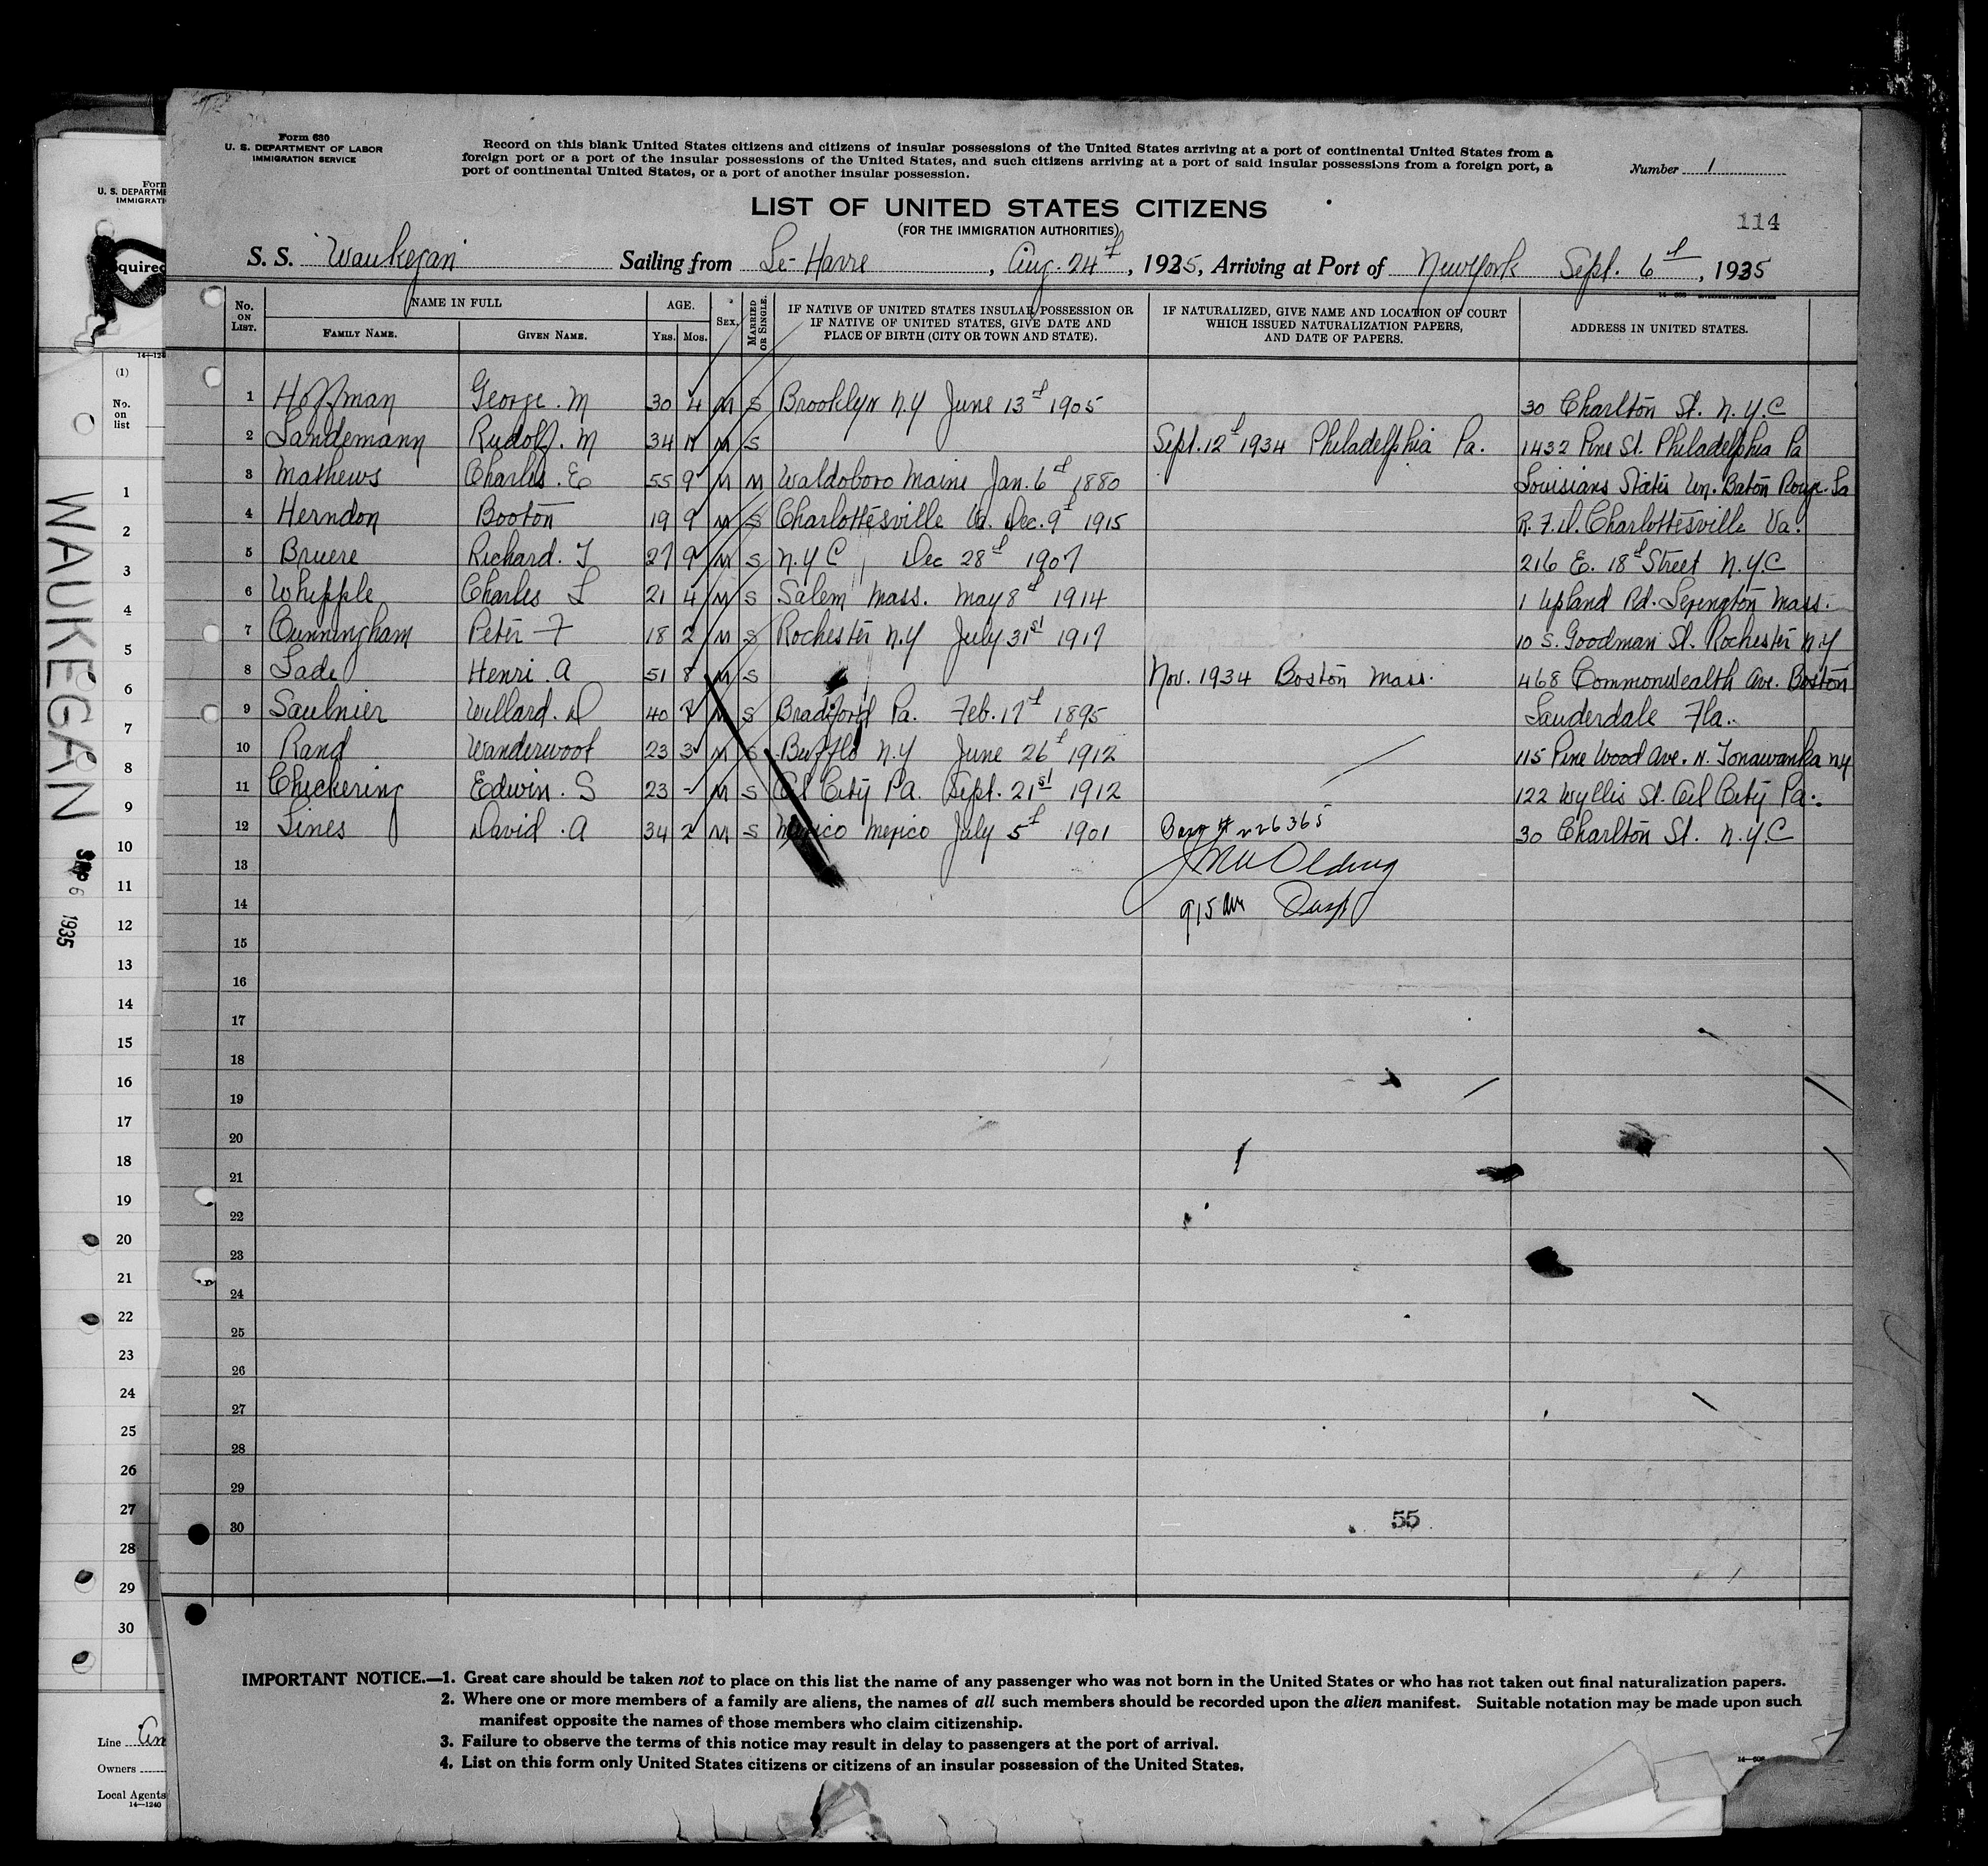 Form 630
U. S. DEPARTMENT OF LABOR
IMMIGRATION SERVICE
Record on this blank United States citizens and citizens of insular possessions of the United States arriving at a port of continental United States from a
foreign port or a port of the insular possessions of the United States, and such citizens arriving at a port of said insular possessions from a foreign port, a
port of continental United States, or a port of another insular possession.
Number 1
LIST OF UNITED STATES CITIZENS
(FOR THE IMMIGRATION AUTHORITIES)
114
S. S. Waukegan Sailing from Le-Havre, Aug. 24, 1935, Arriving at Port of New York Sept. 6, 1935
No. ON LIST. NAME IN FULL FAMILY NAME. GIVEN NAME. AGE. YRS. MOS. SEX. MARRIED OR SINGLE. IF NATIVE OF UNITED STATES INSULAR POSSESSION OR IF NATIVE OF UNITED STATES, GIVE DATE AND PLACE OF BIRTH (CITY OR TOWN AND STATE). IF NATURALIZED, GIVE NAME AND LOCATION OF COURT WHICH ISSUED NATURALIZATION PAPERS, AND DATE OF PAPERS. ADDRESS IN UNITED STATES.
1 Hoffman George. M 30 4 M S Brooklyn N.Y June 13 1905 30 Charlton St. N.Y.C
2 Landemann Rudolf. M 34 11 M S Sept. 12 1934 Philadelphia Pa. 1432 Pine St. Philadelphia Pa
3 Mathews Charles. E 55 9 M M Waldoboro Maine Jan. 6 1880 Louisians States Un. Baton Rouge. La
4 Herndon Booton 19 9 M S Charlottesville Va. Dec. 9 1915 R.F.D. Charlottesville Va.
5 Bruere Richard. T 27 9 M S N.Y C Dec 28 1907 216 E. 18 Street N.Y.C
6 Whipple Charles L 21 4 M S Salem Mass. May 8 1914 1 Upland Rd. Lexington Mass.
7 Cunningham Peter F 18 2 M S Rochester N.Y July 31st 1917 10 S. Goodman St. Rochester N.Y
8 Lade Henri. A 51 8 M S Nov. 1934 Boston Mass. 468 Commonwealth Ave. Boston
9 Saulnier Willard. D 40 7 M S Bradford Pa. Feb. 17 1895 Lauderdale Fla.
10 Rand Wanderwoot 23 3 M S Bufflo N.Y June 26 1912 115 Pine Wood Ave. N. Tonawanka NY
11 Chickering Edwin. S 23 - M S Oil City Pa. Sept. 21st 1912 122 Wyllis St. Oil City Pa.
12 Lines David. A 34 2 M S Mexico Mexico July 5 1901 226365 30 Charlton St. N.Y.C
13
14 915 am
15
16
17
18
19
20
21
22
23
24
25
26
27
28
29
30
55
IMPORTANT NOTICE.—1. Great care should be taken not to place on this list the name of any passenger who was not born in the United States or who has not taken out final naturalization papers.
2. Where one or more members of a family are aliens, the names of all such members should be recorded upon the alien manifest. Suitable notation may be made upon such
manifest opposite the names of those members who claim citizenship.
3. Failure to observe the terms of this notice may result in delay to passengers at the port of arrival.
4. List on this form only United States citizens or citizens of an insular possession of the United States.
Form
U. S. DEPARTME
IMMIGRATI
quired
14—124
(1)
No.
on
list
1
2
3
4
5
6
7
8
9
10
11
12
13
14
15
16
17
18
19
20
21
22
23
24
25
26
27
28
29
30
WAUKEGAN
SEP 6 1935
Line
Owners
Local Agents
14—1240